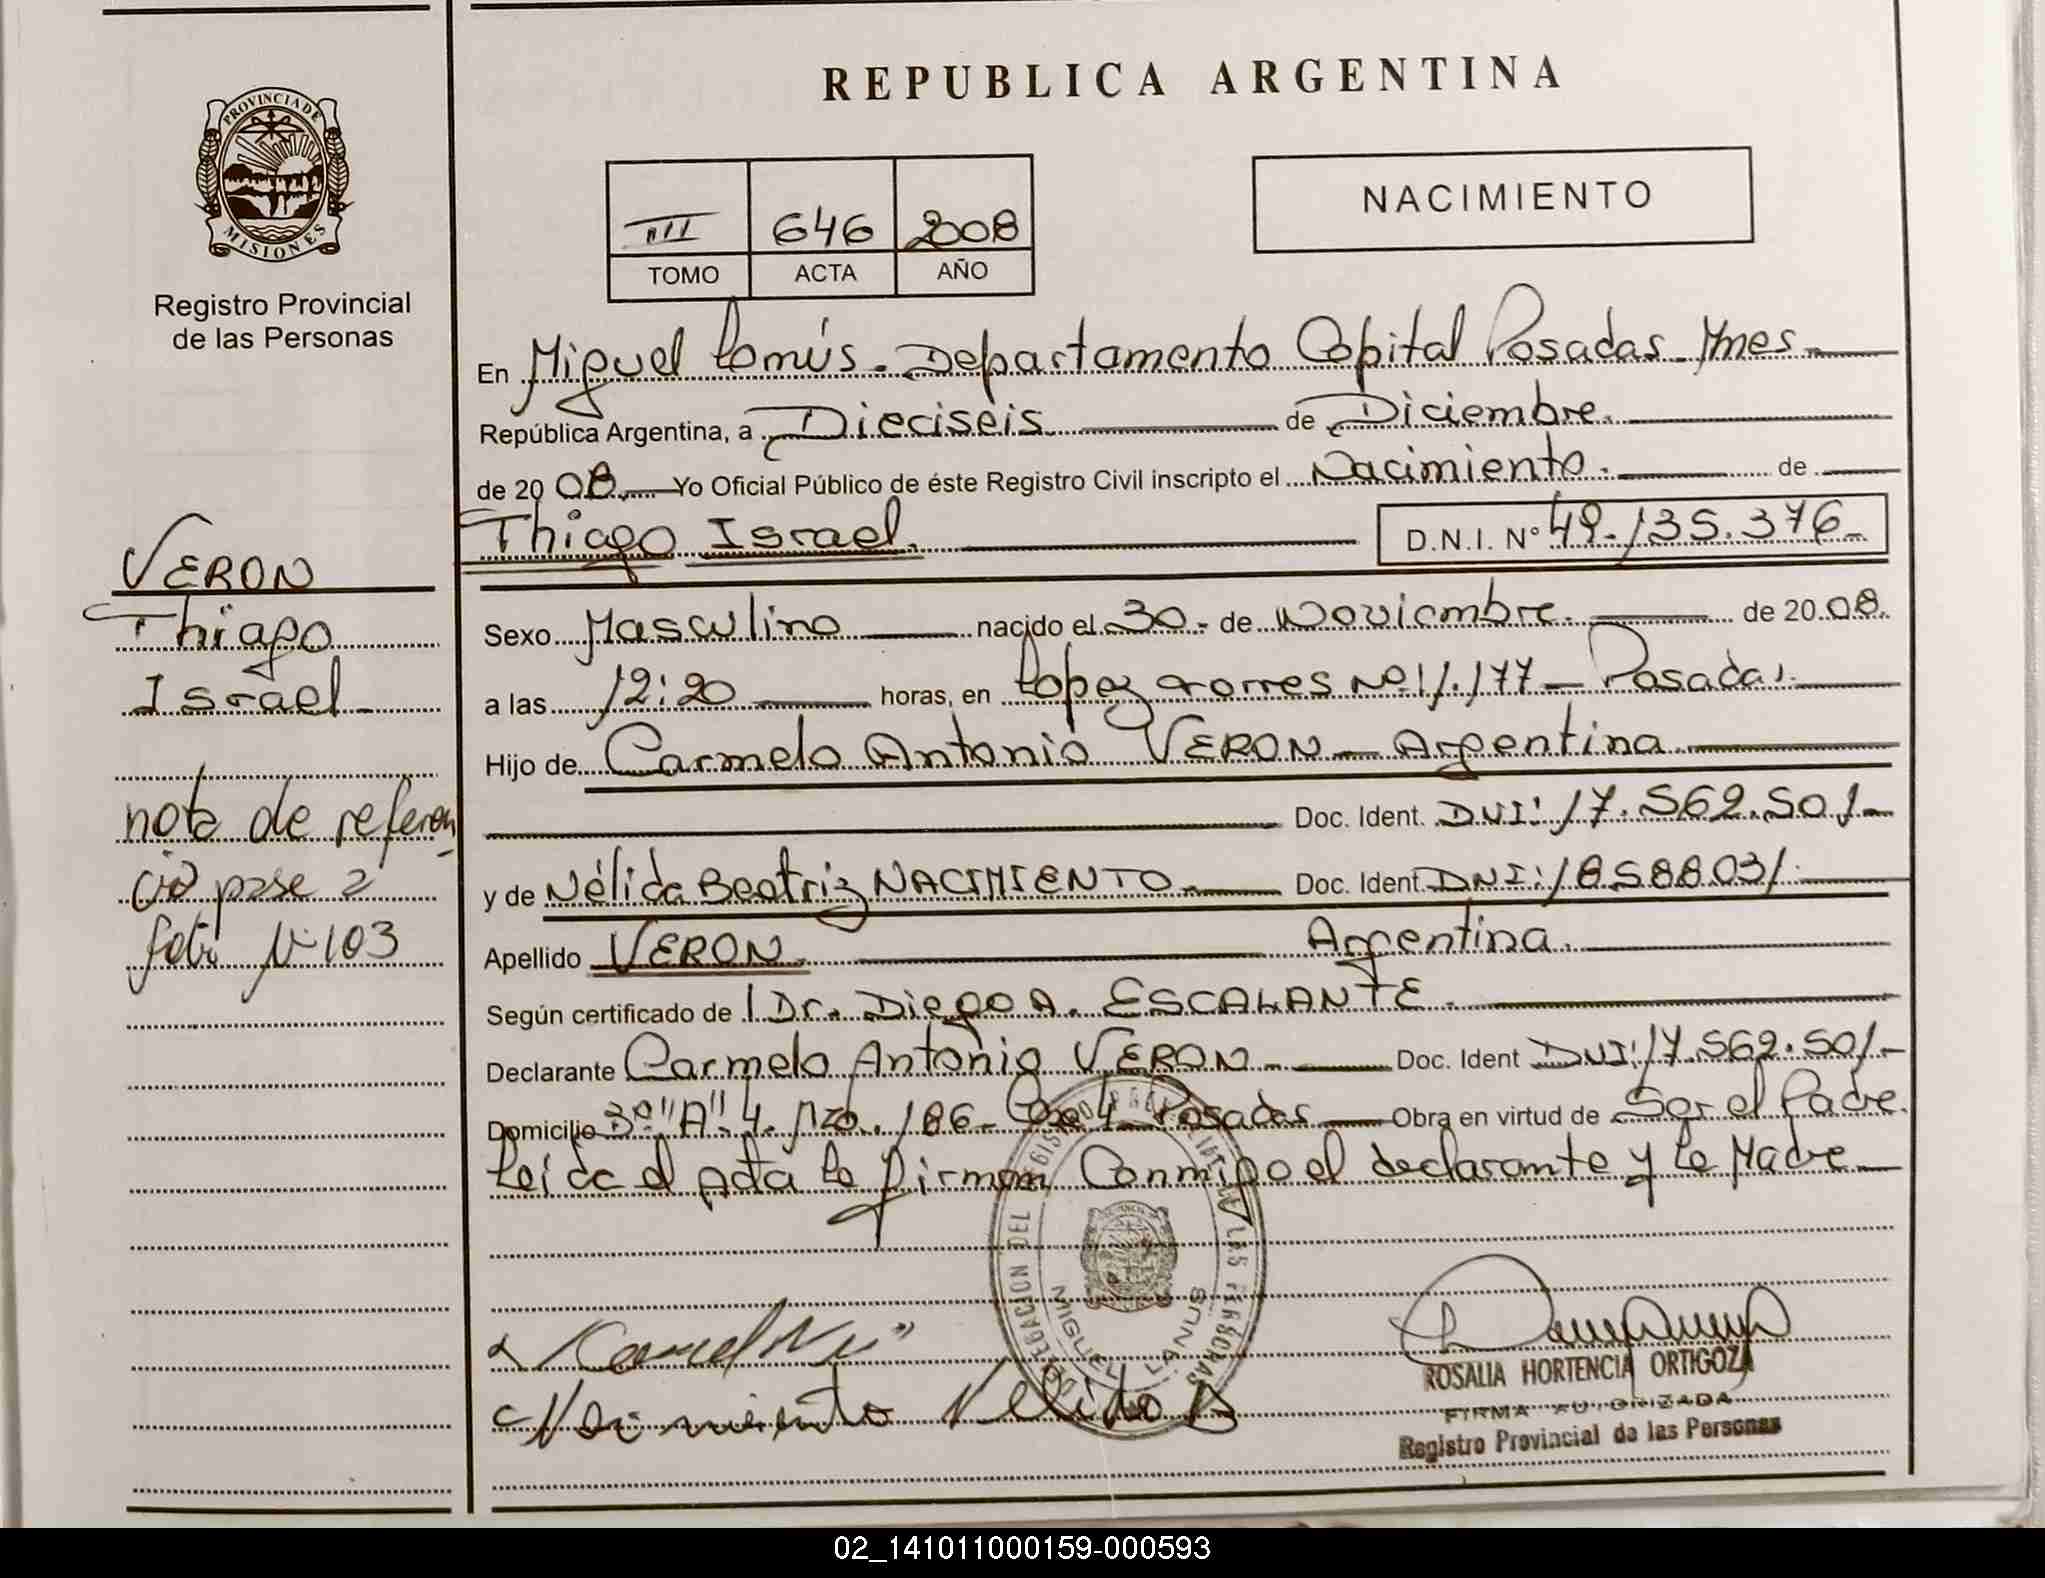 REPUBLICA ARGENTINA
PROVINCIA DE
MISIONES
Registro Provincial
de las Personas
III 646 2008
TOMO ACTA AÑO
NACIMIENTO
En Miguel Lanús. Departamento Capital Posadas Mnes
República Argentina, a Dieciseis de Diciembre.
de 2008. Yo Oficial Público de éste Registro Civil inscripto el Nacimiento. de
Thiago Israel. D.N.I. N° 49.135.376
Sexo Masculino nacido el 30 de Noviembre. de 2008.
a las 12:20 horas, en Lopez Torres Nº 1.177 Posadas.
Hijo de Carmelo Antonio VERON Argentina
Doc. Ident. DNI: 17.562.501
y de Nélida Beatriz NACIMIENTO Doc. Ident. DNI: 18588031.
Apellido VERON. Argentina.
Según certificado de l Dr. Diego A. ESCALANTE.
Declarante Carmelo Antonio VERON Doc. Ident DNI: 17.562.501
Domicilio 3º "A" 4. 186 4 Posadas Obra en virtud de Ser el Padre.
Leida el Acta la firman Conmigo el declarante y la Madre
VERON
Thiago
Israel
nota de referen
cia pase a
folio Nº 103
DELEGACION DEL REGISTRO PROVINCIAL DE LAS PERSONAS
MIGUEL LANUS
Nacimiento Nelida B
ROSALIA HORTENCIA ORTIGOZA
FIRMA AUTORIZADA
Registro Provincial de las Personas
02_141011000159-000593